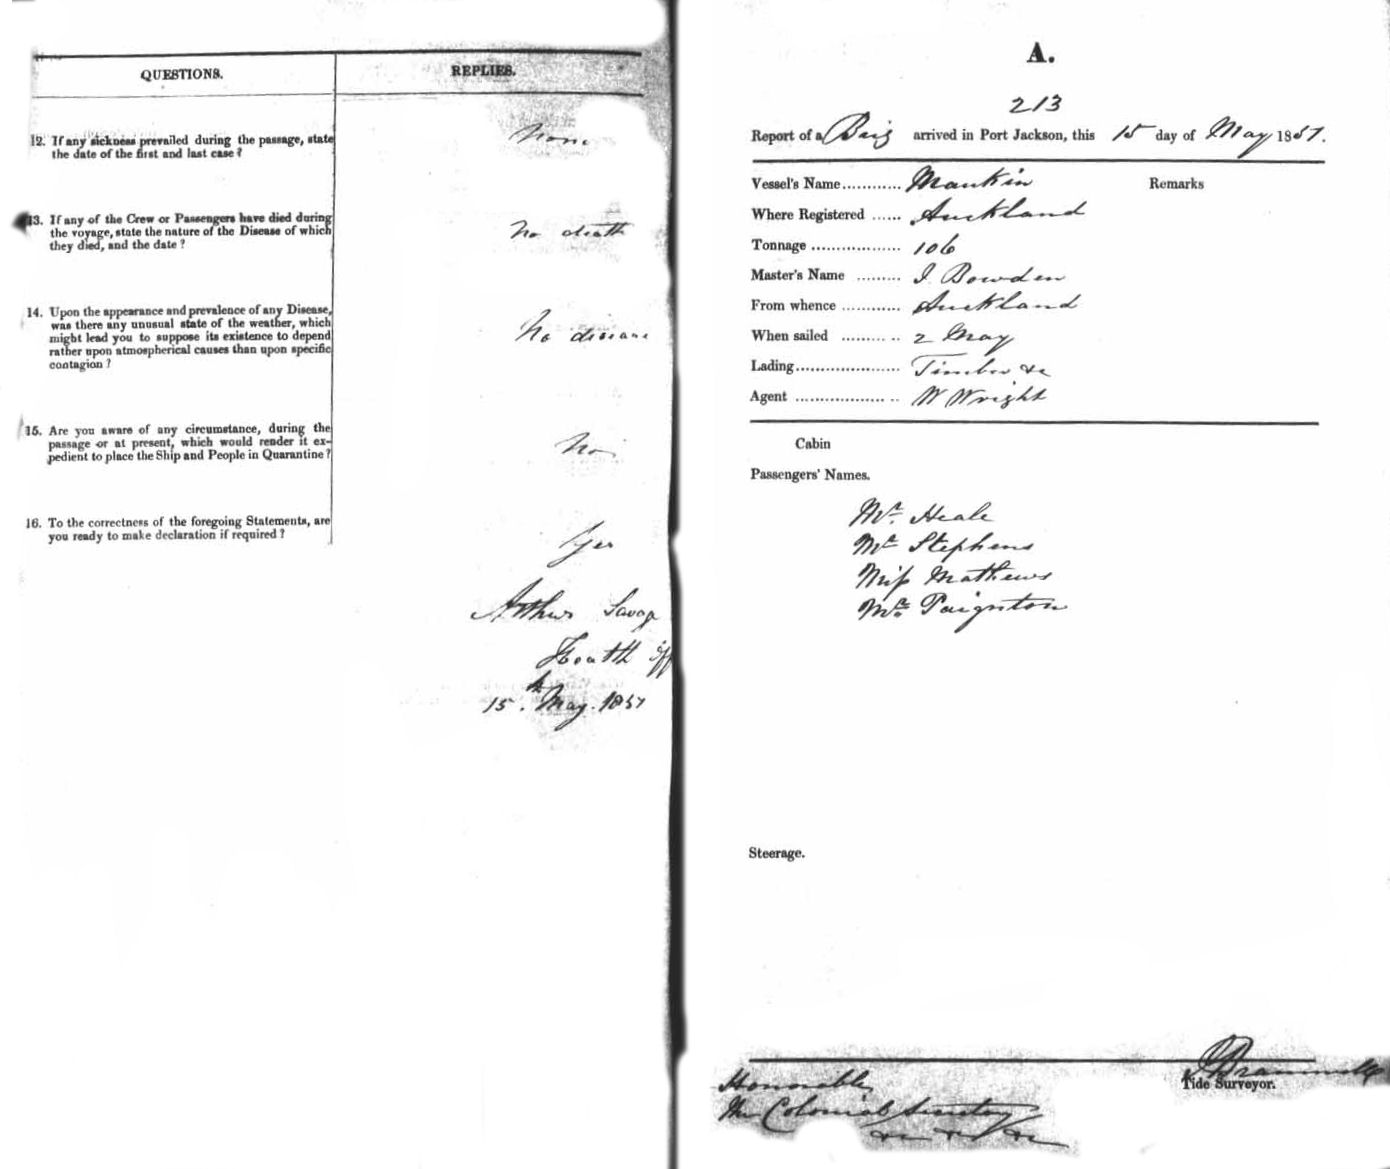 QUESTIONS.
REPLIES.
12. If any sickness prevailed during the passage, state
the date of the first and last case?
None
13. If any of the Crew or Passengers have died during
the voyage, state the nature of the Disease of which
they died, and the date?
No death
14. Upon the appearance and prevalence of any Disease,
was there any unusual state of the weather, which
might lead you to suppose its existence to depend
rather upon atmospherical causes than upon specific
contagion?
No disease
15. Are you aware of any circumstance, during the
passage or at present, which would render it ex-
pedient to place the Ship and People in Quarantine?
No
16. To the correctness of the foregoing Statements, are
you ready to make declaration if required?
Yes
Arthur Savag
Health off
15th May. 1851
A.
213
Report of a Brig arrived in Port Jackson, this 15 day of May 1851.
Vessel's Name............ Maukin
Remarks
Where Registered ...... Auckland
Tonnage .................. 106
Master's Name ......... J. Bowden
From whence ............ Auckland
When sailed ......... .. 2 May
Lading..................... Timber &c
Agent .................. .. W Wright
Cabin
Passengers' Names.
Mr. Heale
Mr Stephens
Miss Mathews
Mrs. Paignton
Steerage.
Tide Surveyor.
Honorable
The Colonial Secretary
&c &c &c